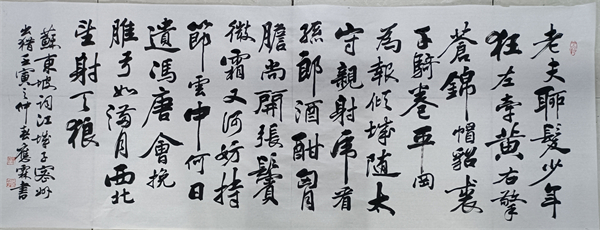 老夫聊髮少年
狂左牽黃右擎
蒼錦帽貂裘
千騎卷平岡
為報傾城隨太
守親射虎看
孫郎酒酣胸
膽尚開張鬢
微霜又何妨持
節雲中何日
遺馮唐會挽
雕弓如滿月西北
望射天狼
蘇東坡詞江城子密州
出猎壬寅之仲春應霖書